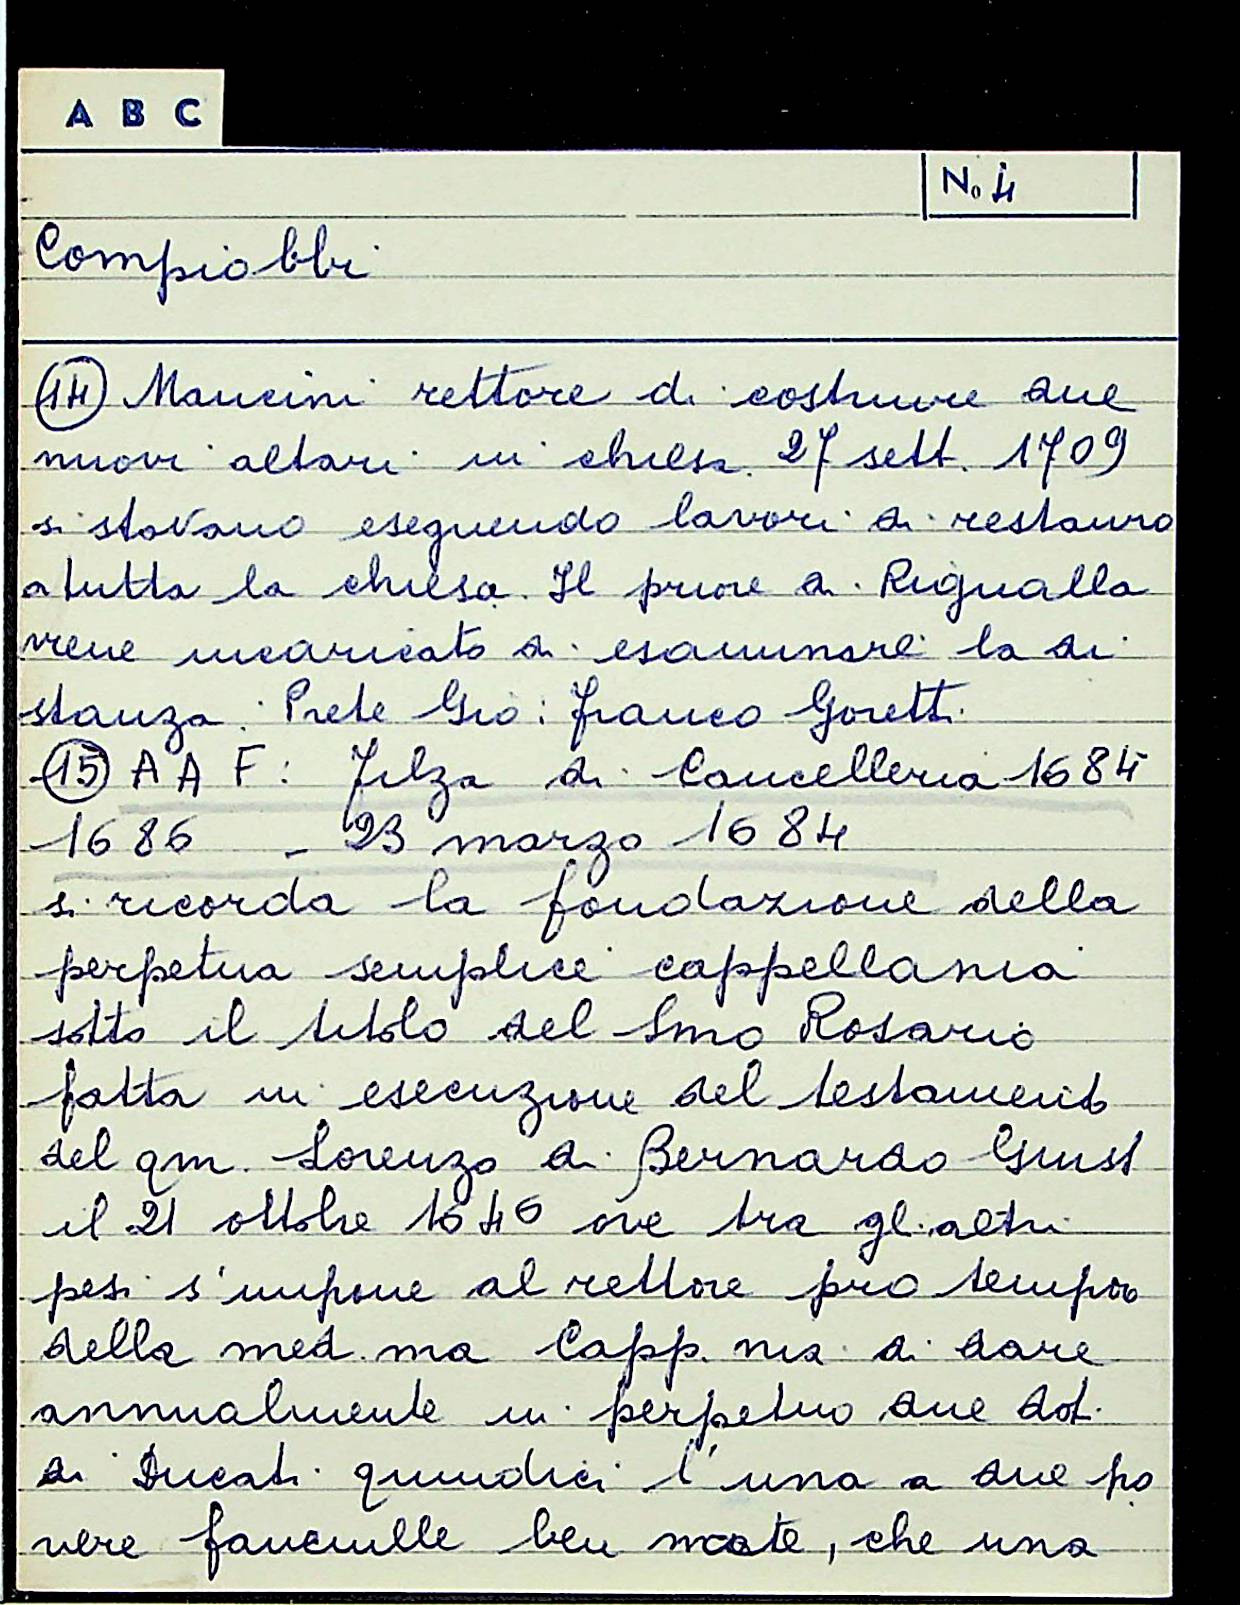 A B C
No 4
Compiobbi
14 Mancini rettore di costruire due
nuovi altari in chiesa. 27 sett. 1709
si stavano eseguendo lavori di restauro
a tutta la chiesa. Il priore di Rignalla
viene incaricato di esaminare la di
stanza. Prete Gio: Franco Goretti.
15 A A F: Filza di Cancelleria 1684
1686 - 23 marzo 1684
si ricorda la fondazione della
perpetua semplice cappellania
sotto il titolo del Smo Rosario
fatta in esecuzione del testamento
del qm. Lorenzo di Bernardo Giusti
il 21 ottobre 1646 ove tra gli altri
pesi s'impone al rettore pro tempore
della med.ma Capp.nia di dare
annualmente in perpetuo due dot.
di Ducati quindici l'una a due po
vere fanciulle ben nate, che una